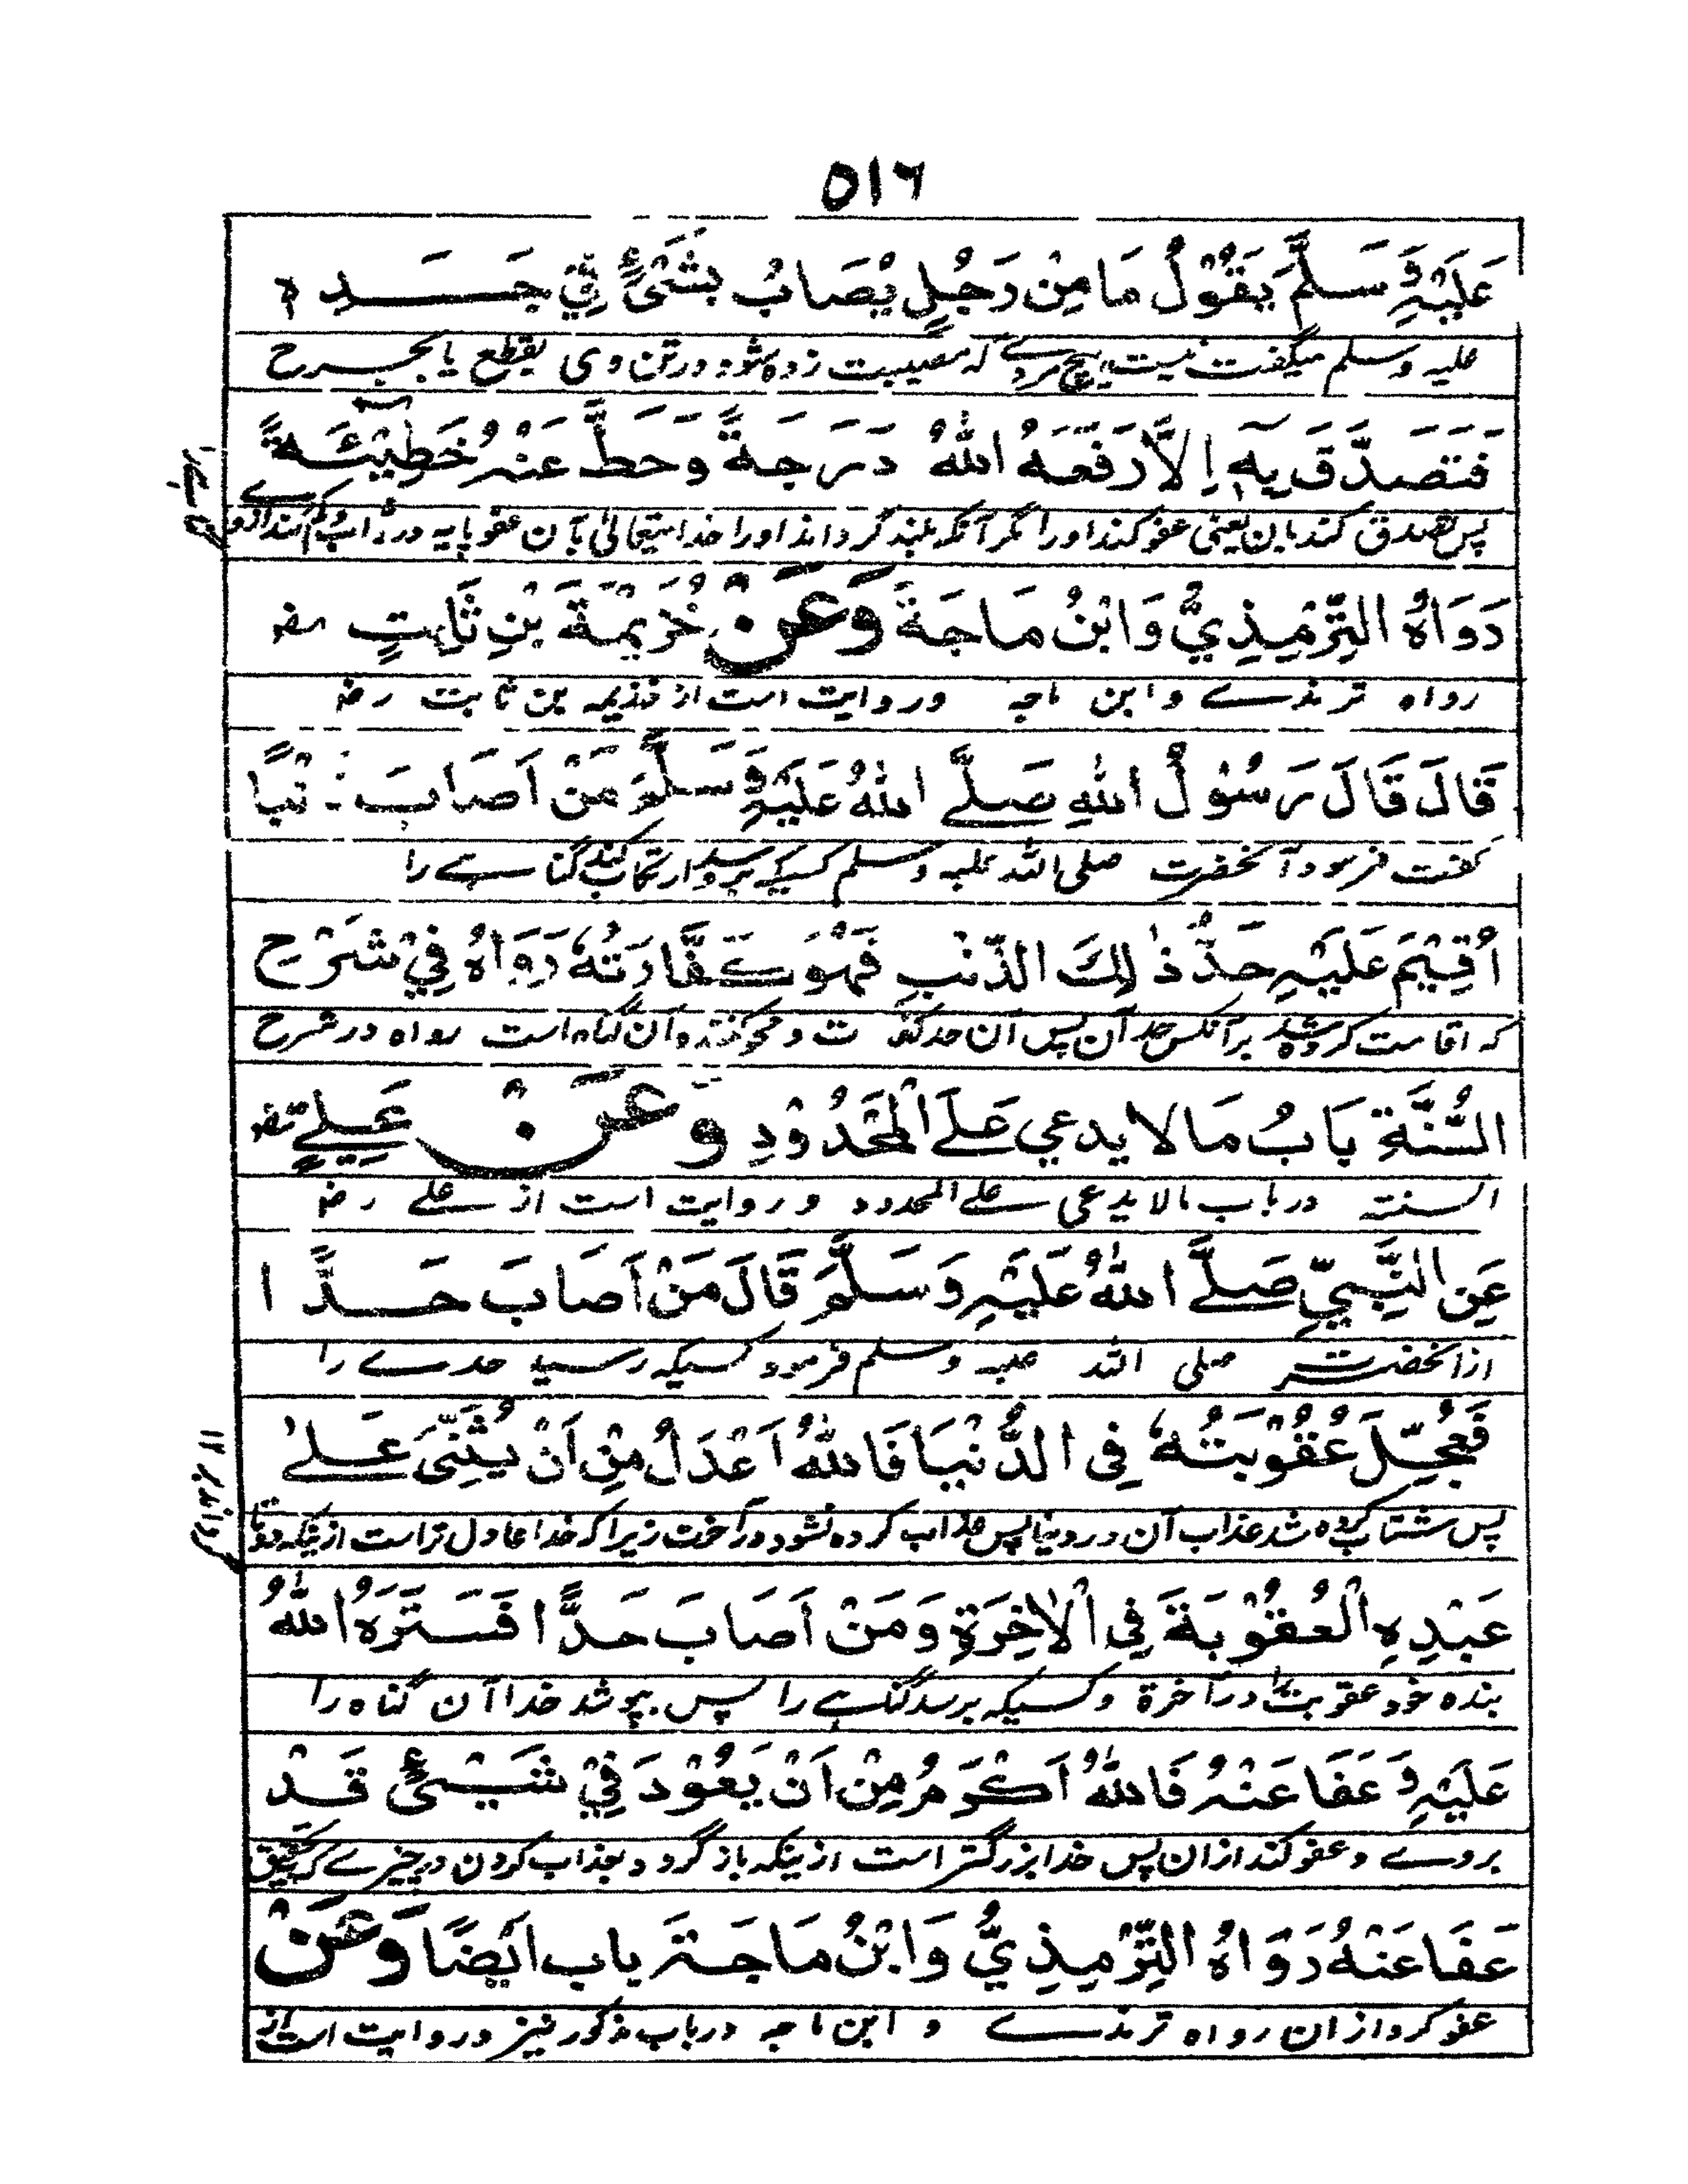 ٥١٦
عَلَيْهِ وَسَلَّمَ يَقُوْلُ مَا مِنْ رَجُلٍ يُصَابُ بِشَيْءٍ فِيْ جَسَدِهٖ
علیه وسلم میگفت نیست هیچ مردے که مصیبت زده شود در تن وی بقطع یا بجرح
فَتَصَدَّقَ بِهٖ اِلَّا رَفَعَهُ اللهُ دَرَجَةً وَحَطَّ عَنْهُ خَطِيْئَةً
پس تصدق کند بان یعنی عفو کند او را مگر آنکه بلند گرداند او را خدایتعالی بآن عفو پایه در ثواب و کم کند ازو
رَوَاهُ التِّرْمِذِيُّ وَابْنُ مَاجَةَ وَعَنْ خُزَيْمَةَ بْنِ ثَابِتٍ رض
رواه ترمذے وابن ماجه وروایت است از خذیمه بن ثابت رض
قَالَ قَالَ رَسُوْلُ اللهِ صَلَّے اللهُ عَلَيْهِ وَسَلَّمَ مَنْ اَصَابَ ذَنْبًا
گفت فرمود آنحضرت صلی الله علیه وسلم کسیکه برسد و ارتکاب کند گناهے را
اُقِيْمَ عَلَيْهِ حَدُّ ذٰلِكَ الذَّنْبِ فَهُوَ كَفَّارَتُهٗ رَوَاهُ فِيْ شَرْحِ
که اقامت کرده شد برآنکس حد آن پس آن حد و محو کننده آن گناه است رواه در شرح
السُّنَّةِ بَابُ مَا لَا يدعي عَلَے الْمَحْدُوْدِ وَعَنْ عَلِيٍّ رض
السنته در باب مالا یدعی علے المحدود و روایت است از علے رض
عَنِ النَّبِيِّ صَلَّے اللهُ عَلَيْهِ وَسَلَّمَ قَالَ مَنْ اَصَابَ حَدًّا
ازانحضرت صلی الله علیه وسلم فرمود کسیکه رسید حدے را
فَعُجِّلَ عُقُوْبَتُهٗ فِي الدُّنْيَا فَاللهُ اَعْدَلُ مِنْ اَنْ يُّثَنِّيَ عَلٰے
پس شتاب کرده شد عذاب آن در دنیا پس عذاب کرده نشود در آخرت زیرا که خدا عادل تر است ازینکه دوتا
عَبْدِهِ الْعُقُوْبَةَ فِي الْاٰخِرَةِ وَمَنْ اَصَابَ حَدًّا فَسَتَرَهُ اللهُ
بنده خود عقوبت را در آخرة وکسیکه برسد گناهے را پس بپوشد خدا آن گناه را
عَلَيْهِ وَعَفَا عَنْهُ فَاللهُ اَكْرَمُ مِنْ اَنْ يَعُوْدَ فِيْ شَيْءٍ قَدْ
بروے وعفو کند ازان پس خدا بزرگتر است ازینکه باز گردد بعذاب کردن در چیزے که بتحقیق
عَفَا عَنْهُ رَوَاهُ التِّرْمِذِيُّ وَابْنُ مَاجَةَ باب اَيْضًا وَعَنْ
عفو کرد ازان رواه ترمذے و ابن ماجه در باب مذکور نیز و روایت است از